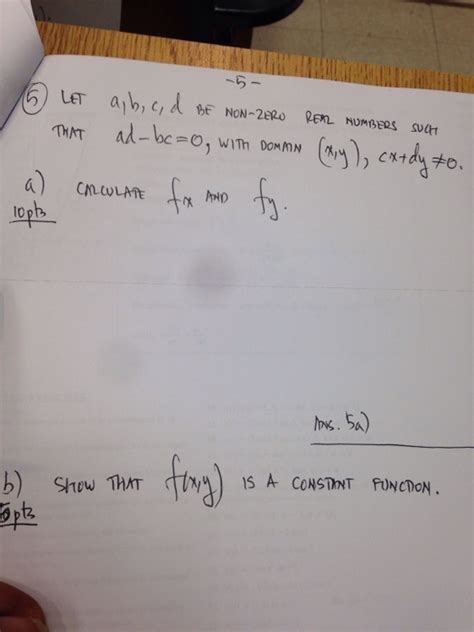 -5-
5 LET a,b,c,d BE NON-ZERO REAL NUMBERS SUCH
THAT ad-bc=0, WITH DOMAIN (x,y), cx+dy≠0.
a) CALCULATE fx AND fy.
10pts
ANS. 5a)
b) SHOW THAT f(x,y) IS A CONSTANT FUNCTION.